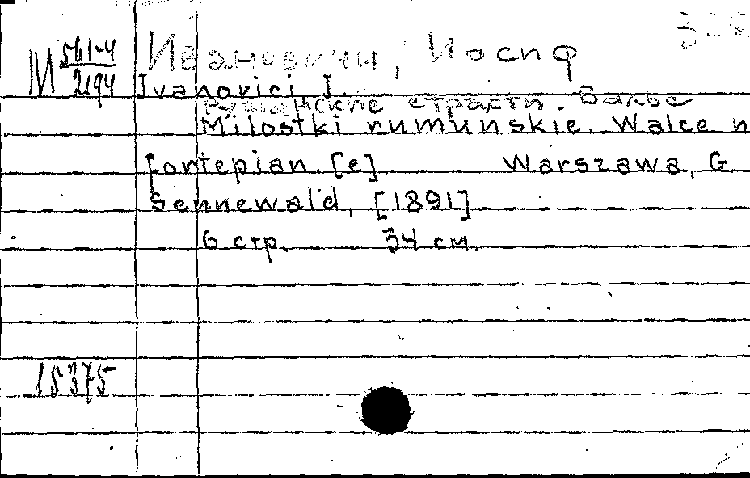 М 561-4
2194
Ивановичи, Иосиф
Ivanovici J.
Румынские страсти. Вальс
Milostki rumuńskie. Walce n
fortepian [e] Warszawa, G
Sennewald, [1891]
6 стр. 34 см.
15375